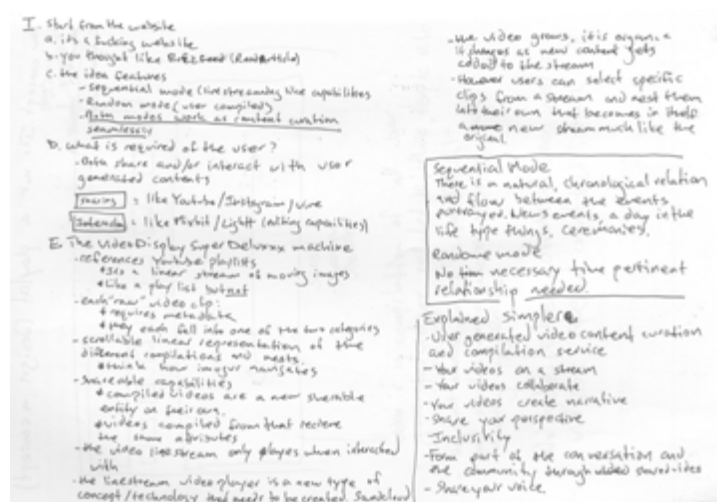 I. Start from the website
a. its a fucking website
b. you thought like (
c. the idea features
- Sequential mode (livestreaming like capabilities
- Random mode (user compiled)
- Both modes work as content curation
seamlessly
D. what is required of the user?
- Both share and/or interact with user
generated contents
= like Youtube/Instagram/vine
= like Mixbit/Lightt (editing capabilities)
E. The video Display Super Deluxxx machine
- references Youtube playlists
its a linear stream of moving images
like a play list but not
- each "raw" video clip:
requires metadata
they each fall into one of the two categories
- scrollable linear representation of the
different compilations and nests.
think how imgur navigates
- Shareable capabilities
compiled videos are a new shareable
entity on their own.
videos compiled from that receive
the same attributes
- the video livestream only playes when interacted
with
- the livestream video player is a new type of
concept/technology that needs to be created.
- the video grows, it is organic
it changes as new content gets
added to the stream
- However users can select specific
clips from a stream and nest them
into their own that becomes in itself
a new stream much like the
original.
Sequential Mode
There is a natural, chronological relation
and flow between the events
portrayed. News events, a day in the
life type things, ceremonies.
Randome mode
No necessary time pertinent
relationship needed.
Explained simpler
- User generated video content curation
and compilation service
- Your videos on a stream
- Your videos collaborate
- Your videos create narrative
- Share your perspective
- Inclusivity
- Form part of the conversation and
the community through shared video
- Share your voice